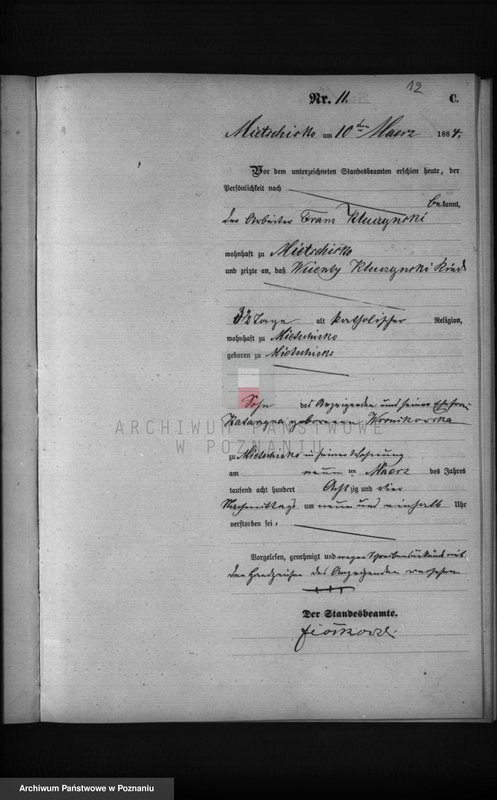 12
Nr. 11.
C.
Mietschisko am 10ten Maerz 1884.
Vor dem unterzeichneten Standesbeamten erschien heute, der
Persönlichkeit nach
bekannt,
der Arbeiter Franz Kluczynski
wohnhaft zu Mietschisko
und zeigte an, daß Wicenty Kluczynski Kind
3½ Tage alt katholischer Religion,
wohnhaft zu Mietschisko
geboren zu Mietschisko
Sohn des Anzeigenden und seiner Ehefrau
Katarzyna geborenen Wronikowska
zu Mietschisko in seiner Wohnung
am neun ten Maerz des Jahres
tausend acht hundert Achtzig und vier
Nachmittags um neun und einhalb Uhr
verstorben sei.
Vorgelesen, genehmigt und wegen Schreibensunkunde mit
den Handzeichen des Anzeigenden versehen
+++
Der Standesbeamte.
ARCHIWUM PAŃSTWOWE
W POZNANIU
Archiwum Państwowe w Poznaniu